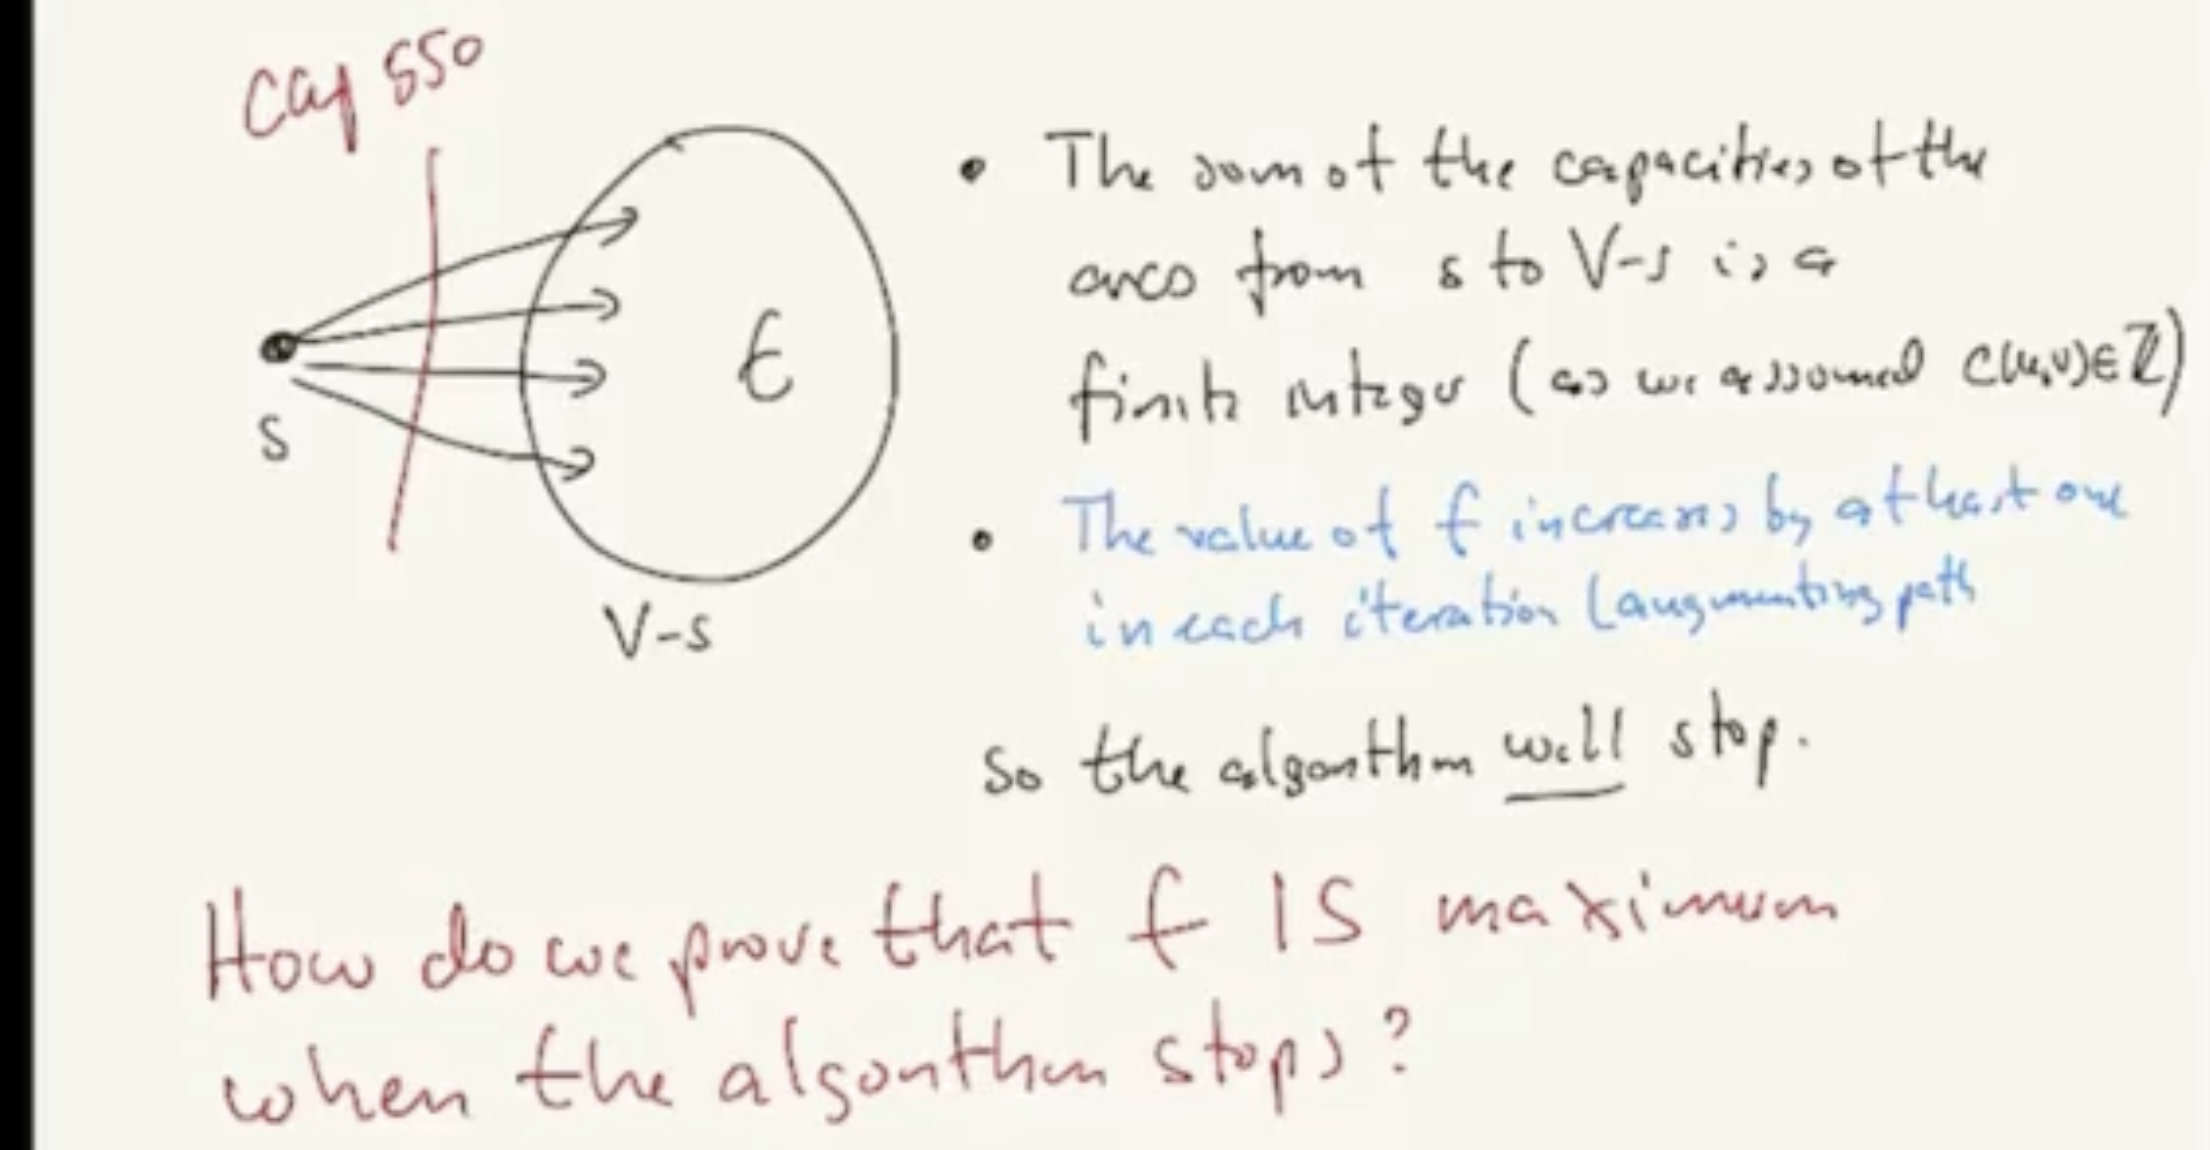 cap 550
s
t
V-s
• The sum of the capacities of the
arcs from s to V-s is a
finite integer (as we assumed c(u,v)∈ℤ)
• The value of f increases by at least one
in each iteration (augmenting path
so the algorithm will stop.
How do we prove that f IS maximum
when the algorithm stops?